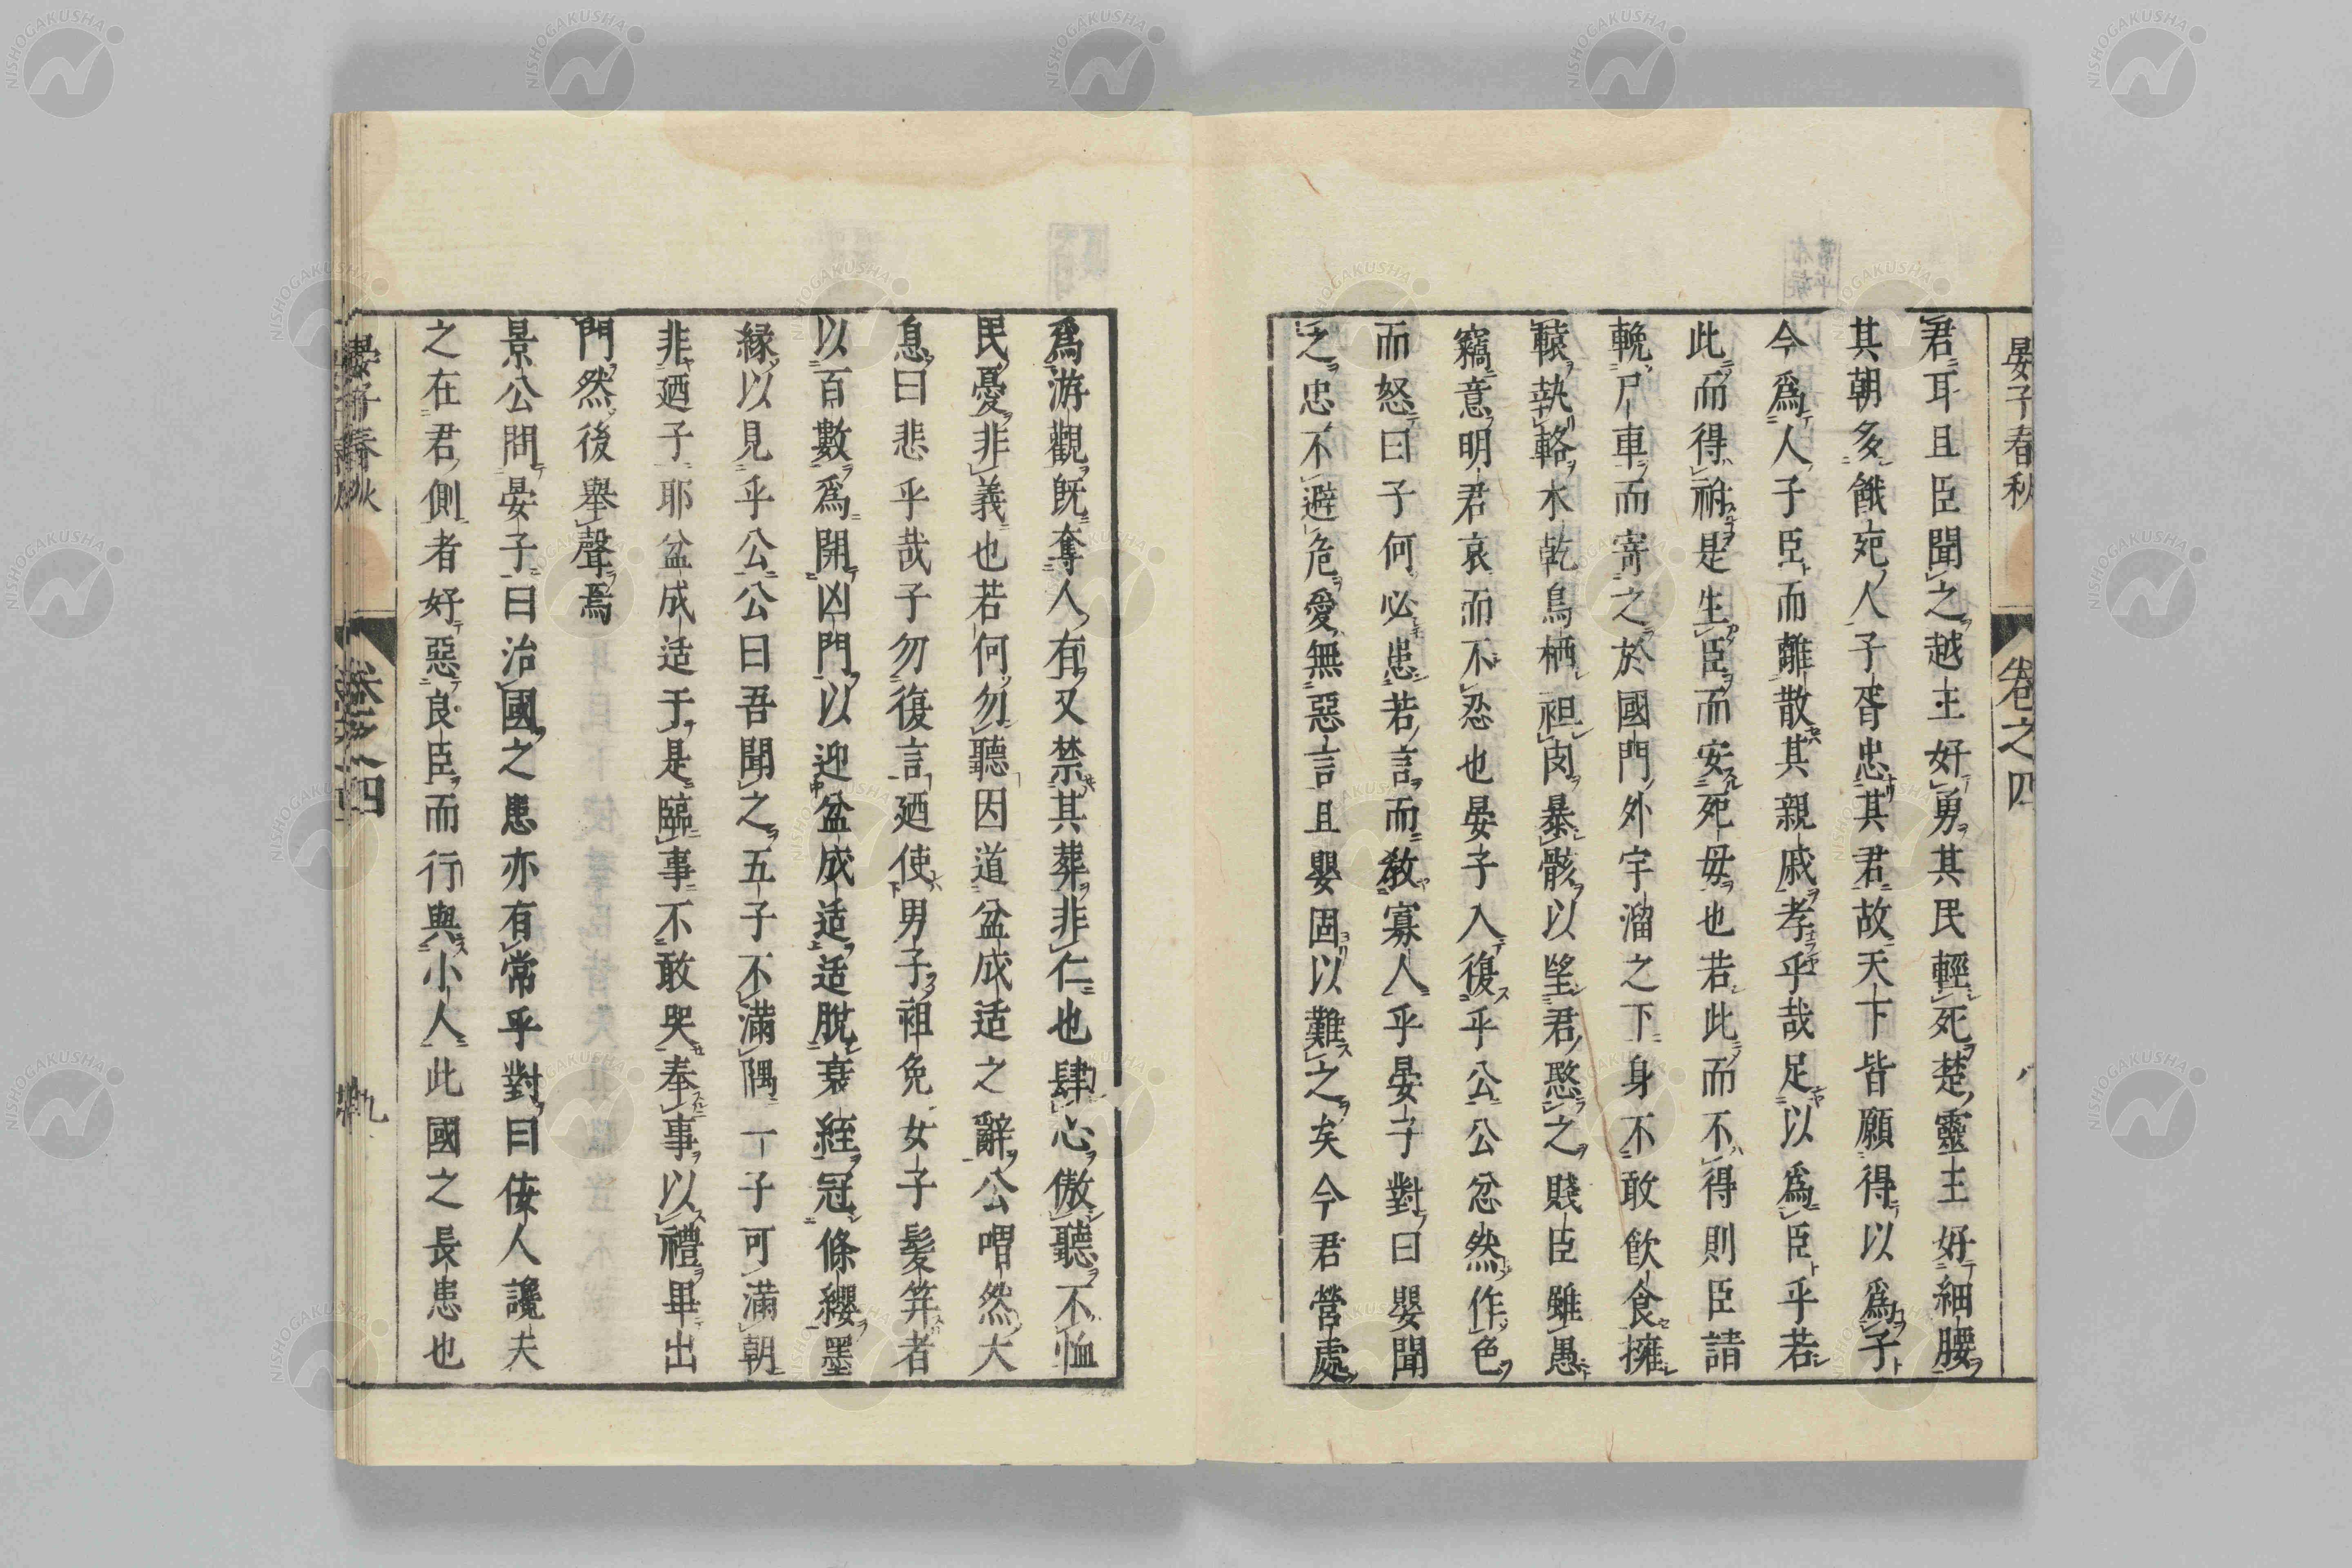 晏子春秋
卷之四
君耳且臣聞之越王好勇其民輕死楚靈王好細腰
其朝多餓死人子胥忠其君故天下皆願得以爲子
今爲人子臣而離散其親戚孝乎哉足以爲臣乎若
此而得祔是生臣而安死毋也若此而不得則臣請
輓尸車而寄之於國門外宇溜之下身不敢飲食擁
轅執輅木乾鳥栖袒肉暴骸以望君愍之賤臣雖愚
竊意明君哀而不忍也晏子入復乎公公忿然作色
而怒曰子何必患若言而教寡人乎晏子對曰嬰聞
之忠不避危愛無惡言且嬰固以難之矣今君營處
爲游觀既奪人有又禁其葬非仁也肆心傲聽不恤
民憂非義也若何勿聽因道盆成适之辭公喟然大
息曰悲乎哉子勿復言廼使男子袒免女子髮笄者
以百數爲開凶門以迎盆成适适脫衰絰冠條纓墨
緣以見乎公公曰吾聞之五子不滿隅一子可滿朝
非廼子耶盆成适于是臨事不敢哭奉事以禮畢出
門然後舉聲焉
景公問晏子曰治國之患亦有常乎對曰佞人讒夫
之在君側者好惡良臣而行與小人此國之長患也
晏子春秋
卷之四
九
NISHOGAKUSHA